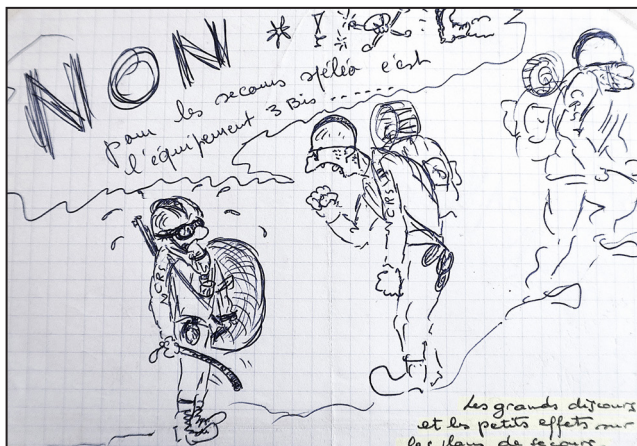 NON * !
pour les secours spéléo c'est
l'équipement 3 Bis ......
CRS
CRS
CRS
Les grands discours
et les petits effets sur
les plans de secours